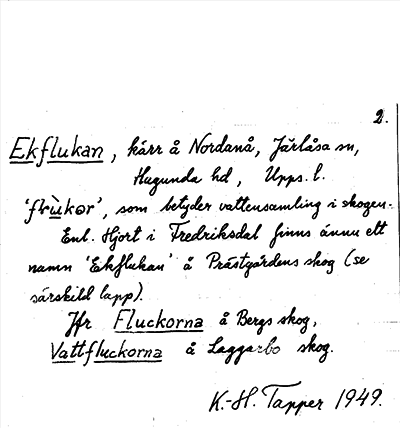 2.
Ekflukan, kärr å Nordanå, Järlåsa sn,
Hagunda hd, Upps. l.
'frùkər', som betyder vattensamling i skogen.
Enl. Hjort i Fredriksdal finns ännu ett
namn 'Ekflukan' å Prästgårdens skog (se
särskild lapp).
Jfr Fluckorna å Bergs skog,
Vattfluckorna å Laggarbo skog.
K.-H. Tapper 1949.